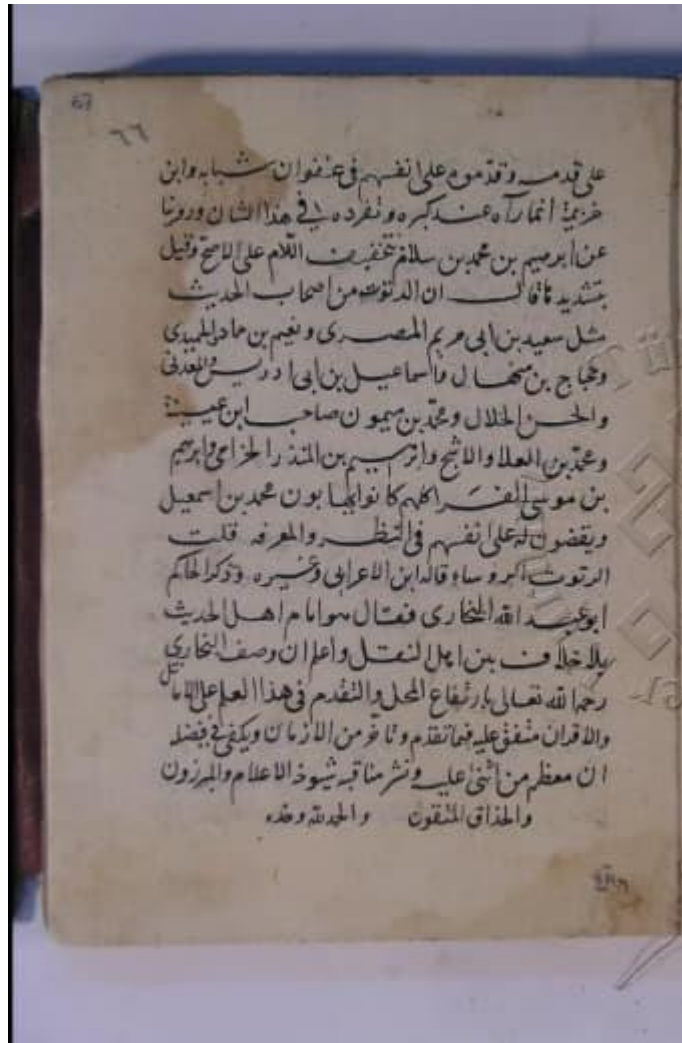 67
٦٦
على قدمه وقدموه على انفسهم في عنفوان شبابه وابن
خزيمة انما رآه عند كبره وتفرده في هذا الشان وروينا
عن ابرهيم بن محمد بن سلام بتخفيف اللام على الاصح وقيل
بتشديدها قال ان الرتوت من اصحاب الحديث
مثل سعيد بن ابي مريم المصرى ونعيم بن حماد والحميدى
وحجاج بن منهال واسماعيل بن ابي ادريس والعدني
والحسن الخلال ومحمد بن ميمون صاحب ابن عيينة
ومحمد بن العلاء والاشج وابرهيم بن المنذر الحزامي وابرهيم
بن موسى الفراء كلهم كانوا يهابون محمد بن اسمعيل
ويقضون له على انفسهم في النظر والمعرفه قلت
الرتوت الروساء قاله ابن الاعرابي وغيره وذكر الحاكم
ابو عبد الله البخارى فقال هو امام اهل الحديث
بلا خلاف بين اهل النقل واعلم ان وصف البخاري
رحمه الله تعالى بارتفاع المحل والتقدم في هذا العلم على الاماثل
والاقران متفق عليه فيما تقدم وتاخر من الازمان ويكفى في فضله
ان معظم من اثنى عليه ونشر مناقبه شيوخه الاعلام والمبرزون
والحذاق المتقون والحمد لله وحده